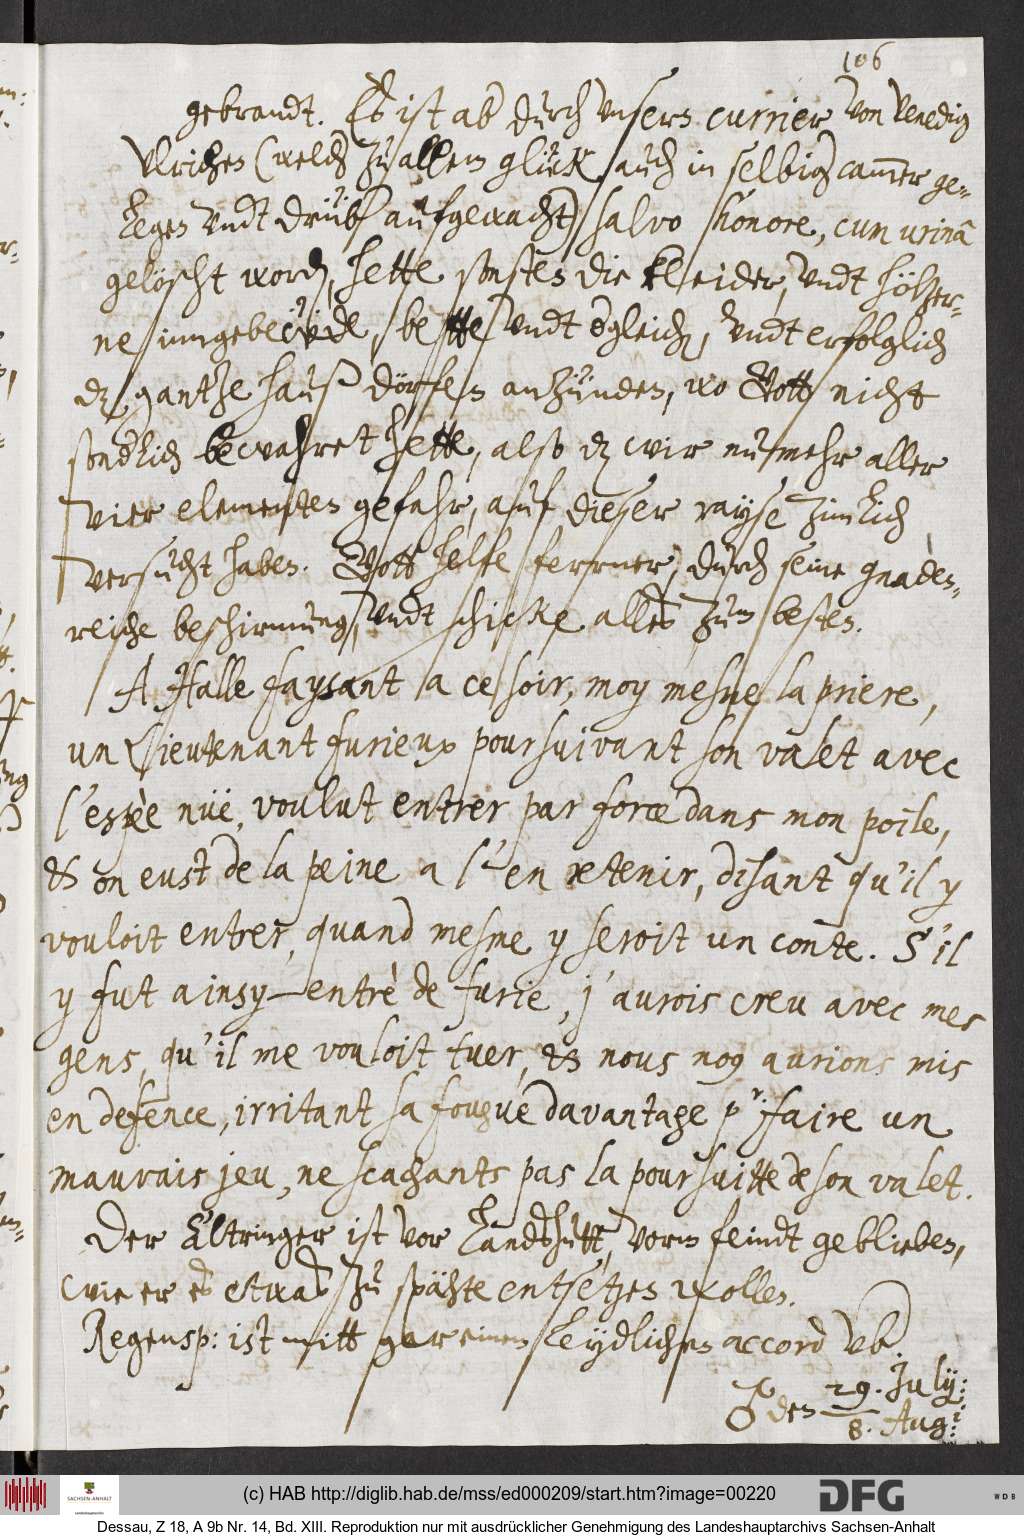 106
gebrandt. Es ist ab durch unsern currier von Venedig
Ulrichen (welch zu allem glück, auch in selbig cammer ge-
legen undt drüb aufgewacht) salvo honore, cum urinâ
gelöscht word, hette sonsten die kleider, undt höltzer-
ne bette undt dgleich, undt erfolglich
dz gantze hauß dörfen anzünden, wo Gott nicht
sondlich bewahret hette, also dz wir nunmehr aller
vier elementen gefahr, auf dieser rayse zimlich
versucht haben. Gott helfe ferrner, durch seine gnaden-
reiche beschirmung, undt schicke alles zum besten.
A Halle faysant a ce soir, moy mesme la priere,
un Lieutenant furieux poursuivant son valet avec
l'espèe nüe, voulut entrer par force dans mon poile,
& on eust de la peine a l'en retenir, disant qu'il y
vouloit entrer, quand mesme y seroit un conte. S'il
y fut ainsy entrè de furie, j'aurois creu avec mes
gens, qu'il me vouloit tuer, & nous nous aurions mis
en defence, irritant sa fougue davantage pr. faire un
mauvais jeu, ne scachants pas la poursuitte de son valet.
Der Altringer ist vor Landshutt, vorm feindt geblieben,
wie er es etwas zu spähte entsetzen wollen.
Regensp: ist mitt gar einem leydlichen accord üb.
♂ den 29. July:
8. Augi:
(c) HAB http://diglib.hab.de/mss/ed000209/start.htm?image=00220
SACHSEN-ANHALT
DFG
WDB
Dessau, Z 18, A 9b Nr. 14, Bd. XIII. Reproduktion nur mit ausdrücklicher Genehmigung des Landeshauptarchivs Sachsen-Anhalt